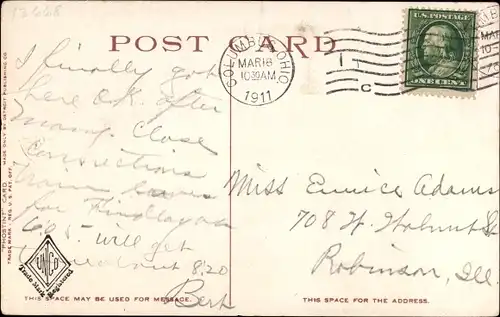 13668
POST CARD
COLUMBUS, OHIO
MAR 18
10 30 AM
1911
U.S. POSTAGE
ONE CENT
I finally got
here O.K. after
many close
connections
train leaves
for Findlay at
6.05 will get
about 8:20
Bert
Miss Eunice Adams
708 W. Walnut St
Robinson, Ill.
"PHOSTINT" CARD MADE ONLY BY DETROIT PUBLISHING CO.
TRADE MARK REG. U.S. PAT. OFF.
UNCO
Trade Mark
Registered
THIS SPACE MAY BE USED FOR MESSAGE.
THIS SPACE IS FOR THE ADDRESS.